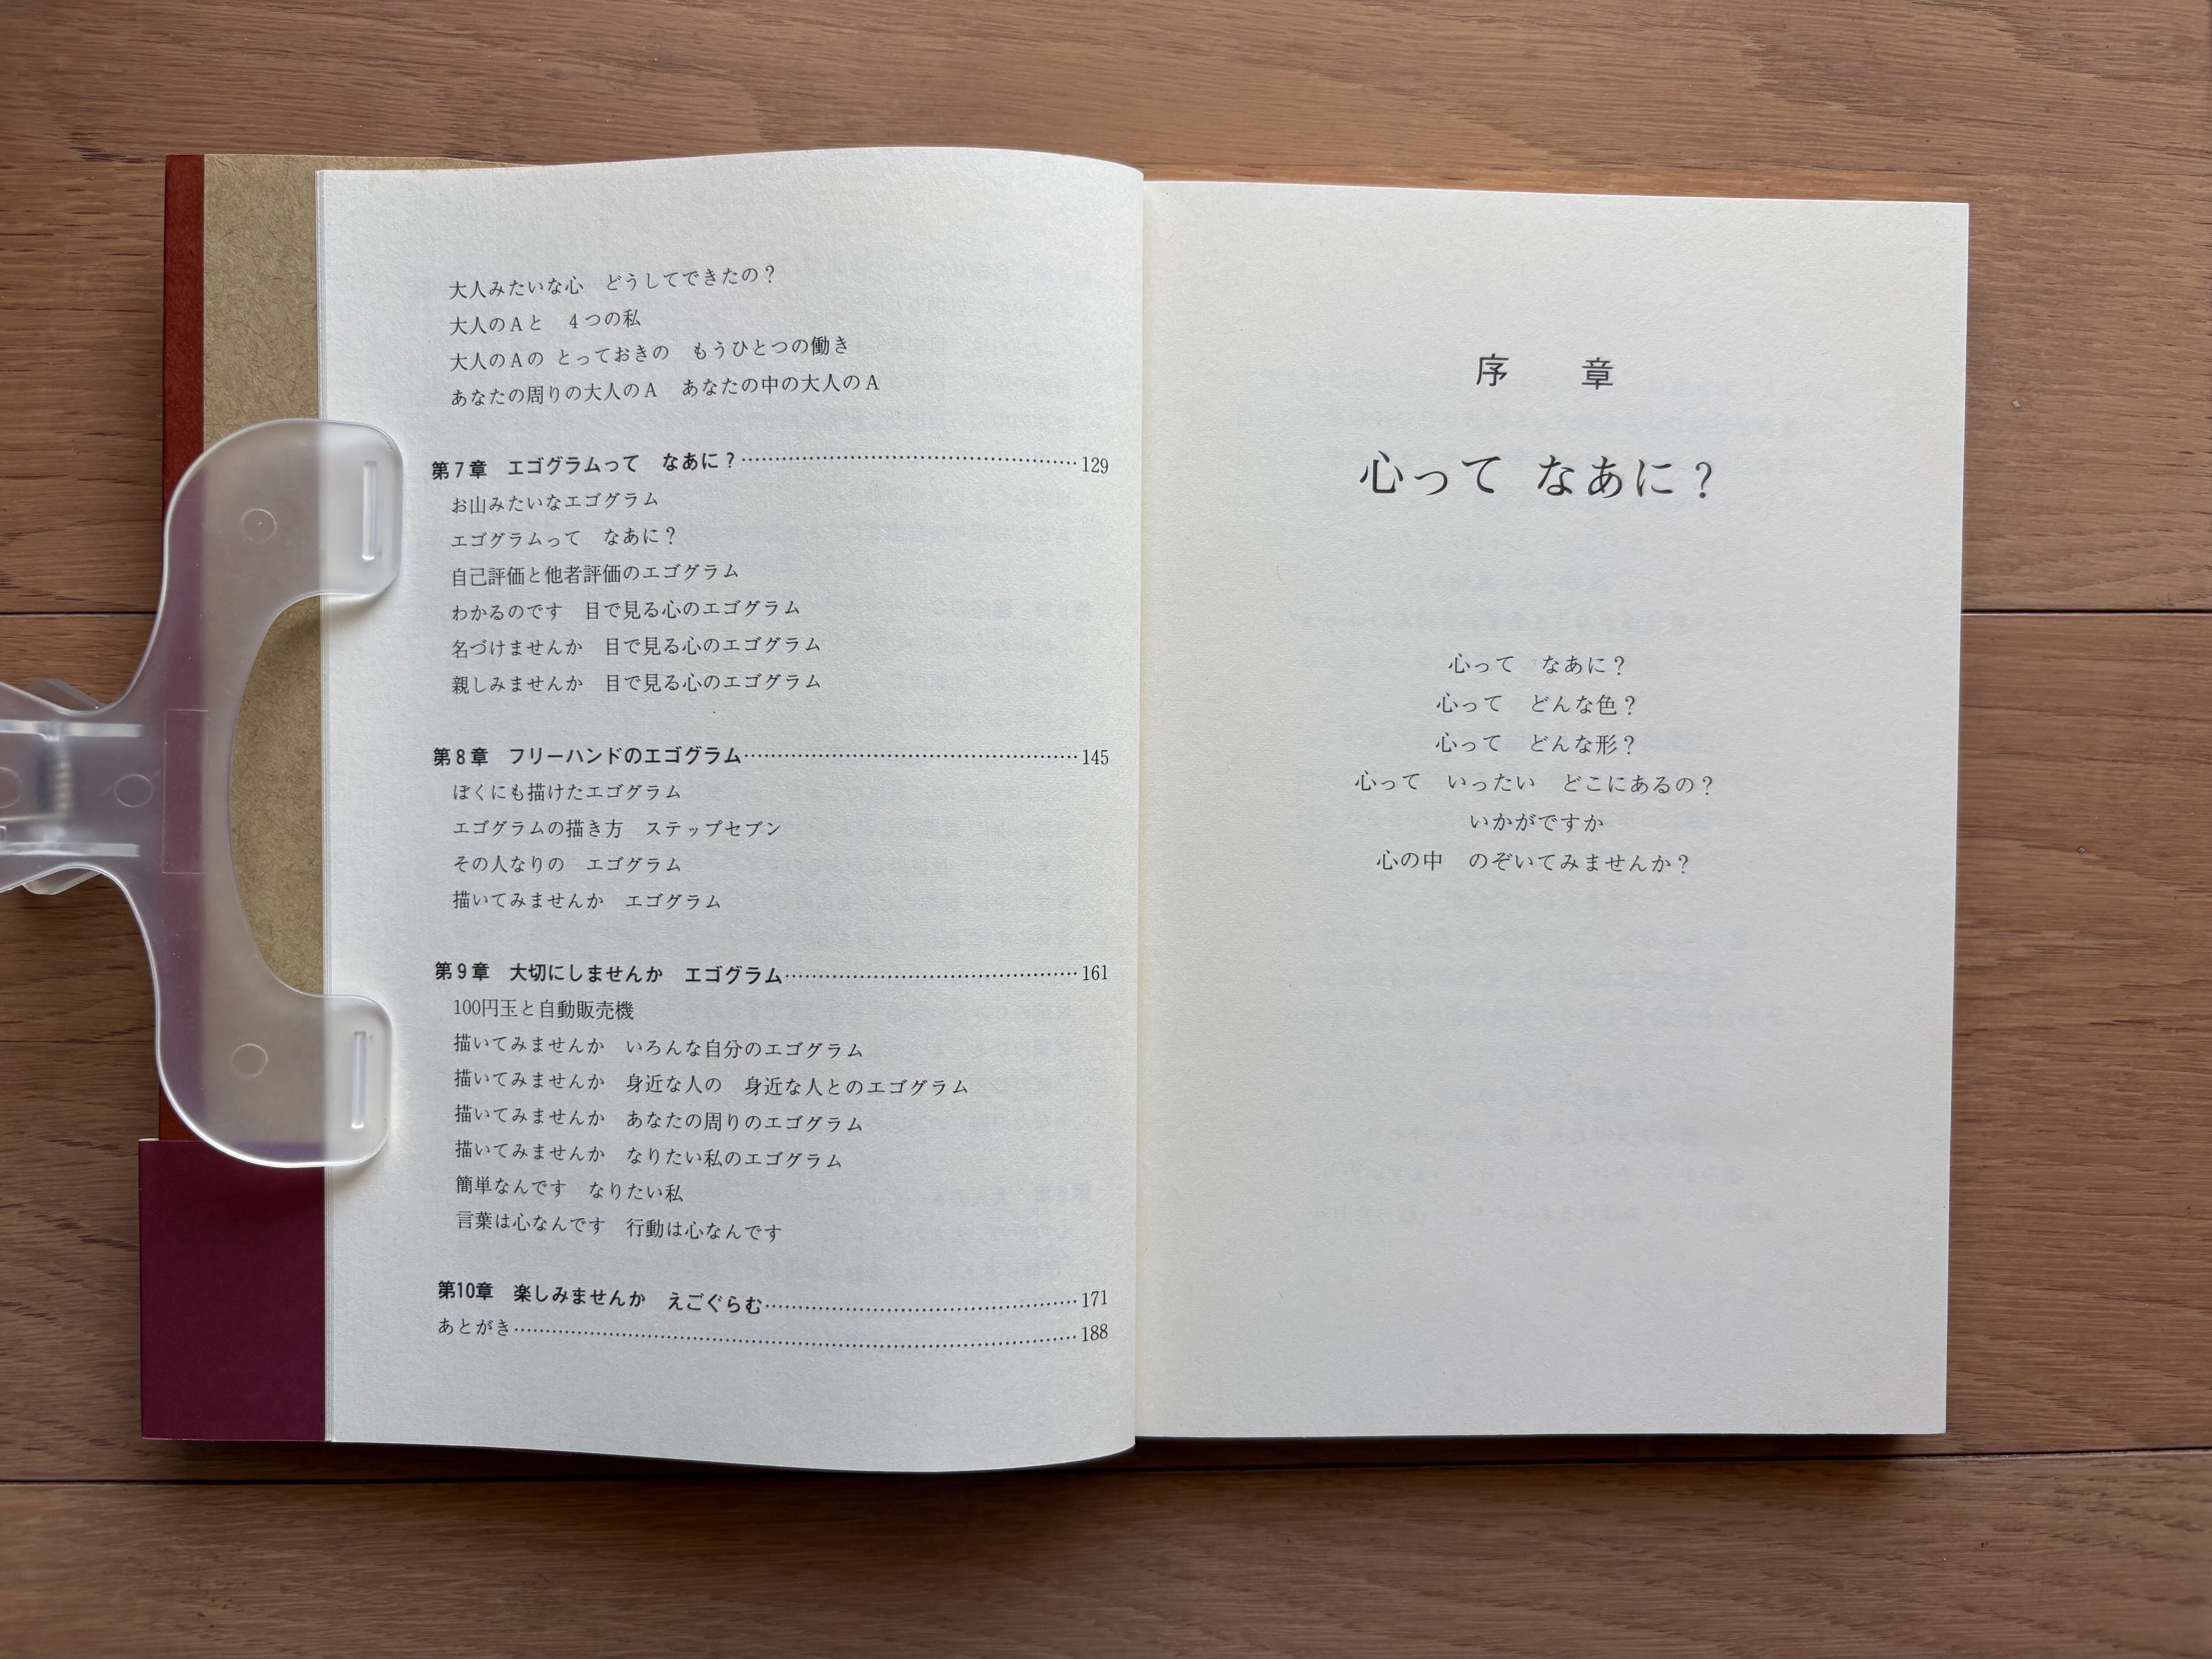 大人みたいな心　どうしてできたの？
大人のAと　4つの私
大人のAの とっておきの　もうひとつの働き
あなたの周りの大人のA　あなたの中の大人のA
第7章　エゴグラムって　なあに？……………………………………129
お山みたいなエゴグラム
エゴグラムって　なあに？
自己評価と他者評価のエゴグラム
わかるのです　目で見る心のエゴグラム
名づけませんか　目で見る心のエゴグラム
親しみませんか　目で見る心のエゴグラム
第8章　フリーハンドのエゴグラム……………………………………145
ぼくにも描けたエゴグラム
エゴグラムの描き方　ステップセブン
その人なりの　エゴグラム
描いてみませんか　エゴグラム
第9章　大切にしませんか　エゴグラム………………………………161
100円玉と自動販売機
描いてみませんか　いろんな自分のエゴグラム
描いてみませんか　身近な人の　身近な人とのエゴグラム
描いてみませんか　あなたの周りのエゴグラム
描いてみませんか　なりたい私のエゴグラム
簡単なんです　なりたい私
言葉は心なんです　行動は心なんです
第10章　楽しみませんか　えごぐらむ…………………………………171
あとがき………………………………………………………………188
序　章
心って なあに？
心って　なあに？
心って　どんな色？
心って　どんな形？
心って　いったい　どこにあるの？
いかがですか
心の中　のぞいてみませんか？